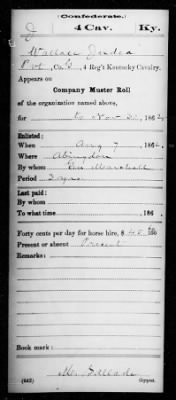 Confederate.
J 4 Cav. Ky.
Wallace
Pvt, Co. 4 Reg't Kentucky Cavalry.
Appears on
Company Muster Roll
of the organization named above,
for to Nov 186
Enlisted:
When Aug 7, 186
Where Abingdon
By whom Marshall
Period 3 yrs
Last paid:
By whom
To what time , 186 .
Forty cents per day for horse hire, $
Present or absent Present
Remarks:
Book mark:
(642) Copyist.